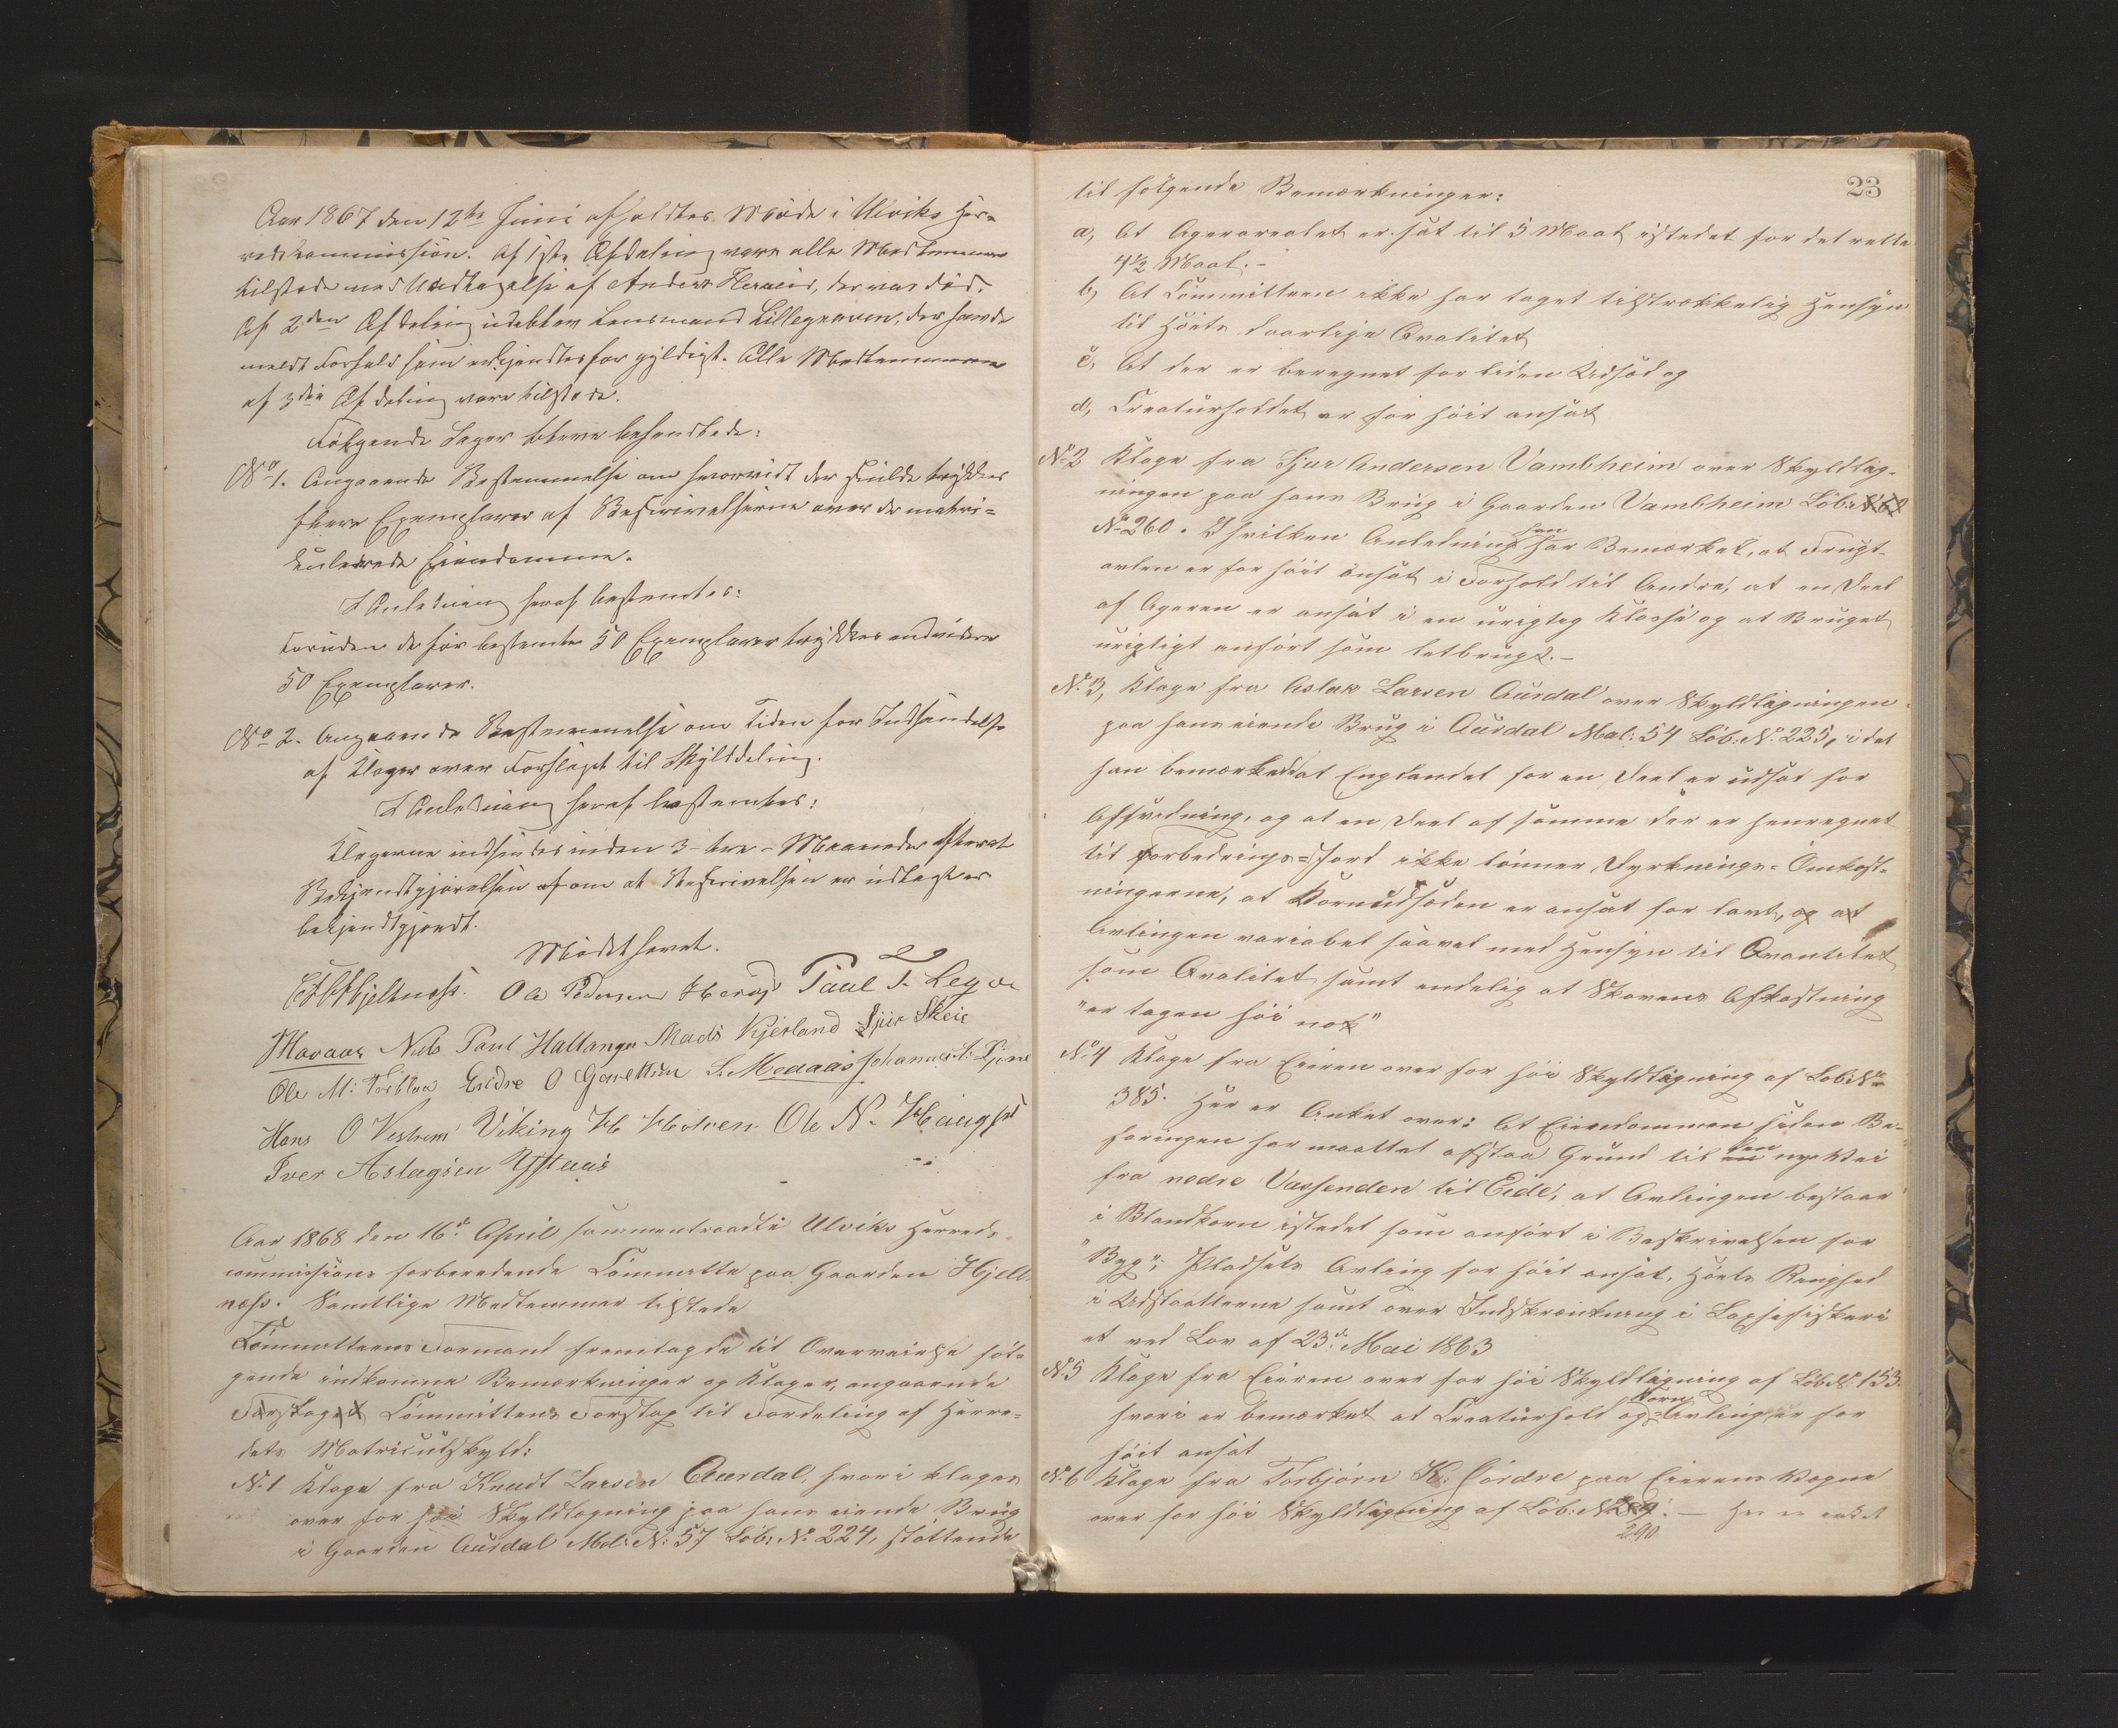 Aar 1867 den 12te Juni afholdtes Møde i Ulviks Her-
redskommission. Af 1ste Afdeling vare alle Medlemmer
tilstede med Undtagelse af Anders Heraeid, der var død.
Af 2den Afdeling udeblev Lensmand Lillegraven, der havde
meldt Forfald som erkjendtes for gyldigt. Alle Medlemmerne
af 3die Afdeling vare tilstede.
Følgende Sager bleve behandlede:
No 1. Angaaende Bestemmelse om hvorvidt der skulde trykkes
flere Exemplarer af Beskrivelserne over de matri-
kulerede Eiendomme.
I Anledning heraf bestemtes:
Foruden de før bestemte 50 Exemplarer trykkes endvidere
50 Exemplarer.
No 2. Angaaende Bestemmelse om Tiden for Indsendelse
af Klager over Forslaget til Skylddeling.
I Anledning heraf bestemtes:
Klagerne indsendes inden 3 - tre - Maaneder efterat
Bekjendtgjørelsen af om at Beskrivelsen er udlagt er
bekjendtgjordt.
Mødet hævet.
Hjeltnæss. Ole Pedersen Paul T. Legre
Mavaas Nils Paul Hallanger Mads Kjerland Sjur Skeie
Ole M: Torblaa Endre O S. Medaas Johannes
Hans O Vestrem Viking H Holven Ole N. Haugse
Iver Aslagsen Ystaas
Aar 1868 den 16de April sammentraadte Ulviks Herreds-
commissions forberedende Committe paa Gaarden Hjelt-
næss. Samtlige Medlemmer tilstede
Committeens Formand fremlagde til Overveielse føl-
gende indkomne Bemærkninger og Klager, angaaende
Forslaget Committens Forslag til Fordeling af Herre-
dets Matriculskyld:
No 1 Klage fra Knudt Larsen Aurdal, hvori klages
over for høi Skyldlægning paa hans eiende Brug
i Gaarden Aurdal Md: No: 57 Løb: No 224, støttende
23
til følgende Bemærkninger:
a, At Agerarealet er sat til 5 Maal istedet for det rette
4½ Maal. -
b, At Committeen ikke har taget tilstrækkelig Hensyn
til Høiets daarlige Qvalitet
c, At der er beregnet for liden Udsæd og
d, Creaturholdet er for høit ansat
No 2 Klage fra Sjur Andersen Vambheim over Skyldlæg-
ningen paa hans Brug i Gaarden Vambheim Løb:
No 260. I hvilken Anledning han har Bemærket, at Frugt-
avlen er for høit ansat i Forhold til Andre, at en Deel
af Ageren er ansat i en urigtig Klasse og at Bruget
urigtigt anført som letbrugt. -
No 3, Klage fra Aslak Larsen Aurdal over Skyldlægningen
paa hans eiende Brug i Aurdal Mat: 54 Løb: No 225, i det
han bemærkede at Englandet for en Deel er udsat for
Afsvedning, og at en Deel af samme der er henregnet
til Forbedrings-Jord ikke lønner Dyrknings-Omkost-
ningerne, at Kornudsæden er ansat for lavt, og at
Avlingen variabel saavel med Hensyn til Qvantitet
som Qvalitet samt endelig at Skovens Afkastning
"er tagen høi nok"
No 4 Klage fra Eieren over for høi Skyldlægning af Løb No
385. Her er Anket over: At Eiendommen siden Be-
faringen har maattet afstaa Grund til den nye Vei
fra nedre Vassenden til Eide, at Avlingen bestaar
i Blandkorn istedet som anført i Beskrivelsen for
"Byg", Pladsets Avling for høit ansat, Høets Ringhed
i Udslaatterne samt over Indskrænkning i Laxefiskeri
et ved Lov af 23de Mai 1863
No 5 Klage fra Eieren over for høi Skyldlægning af Løb No: 153.
hvori er bemærket at Creaturhold og Korn-Avling er for
høit ansat
No 6 Klage fra Torbjørn K: Côrdre paa Eierens Vegne
over for høi Skyldlægning af Løb: No
240. - Her er anket